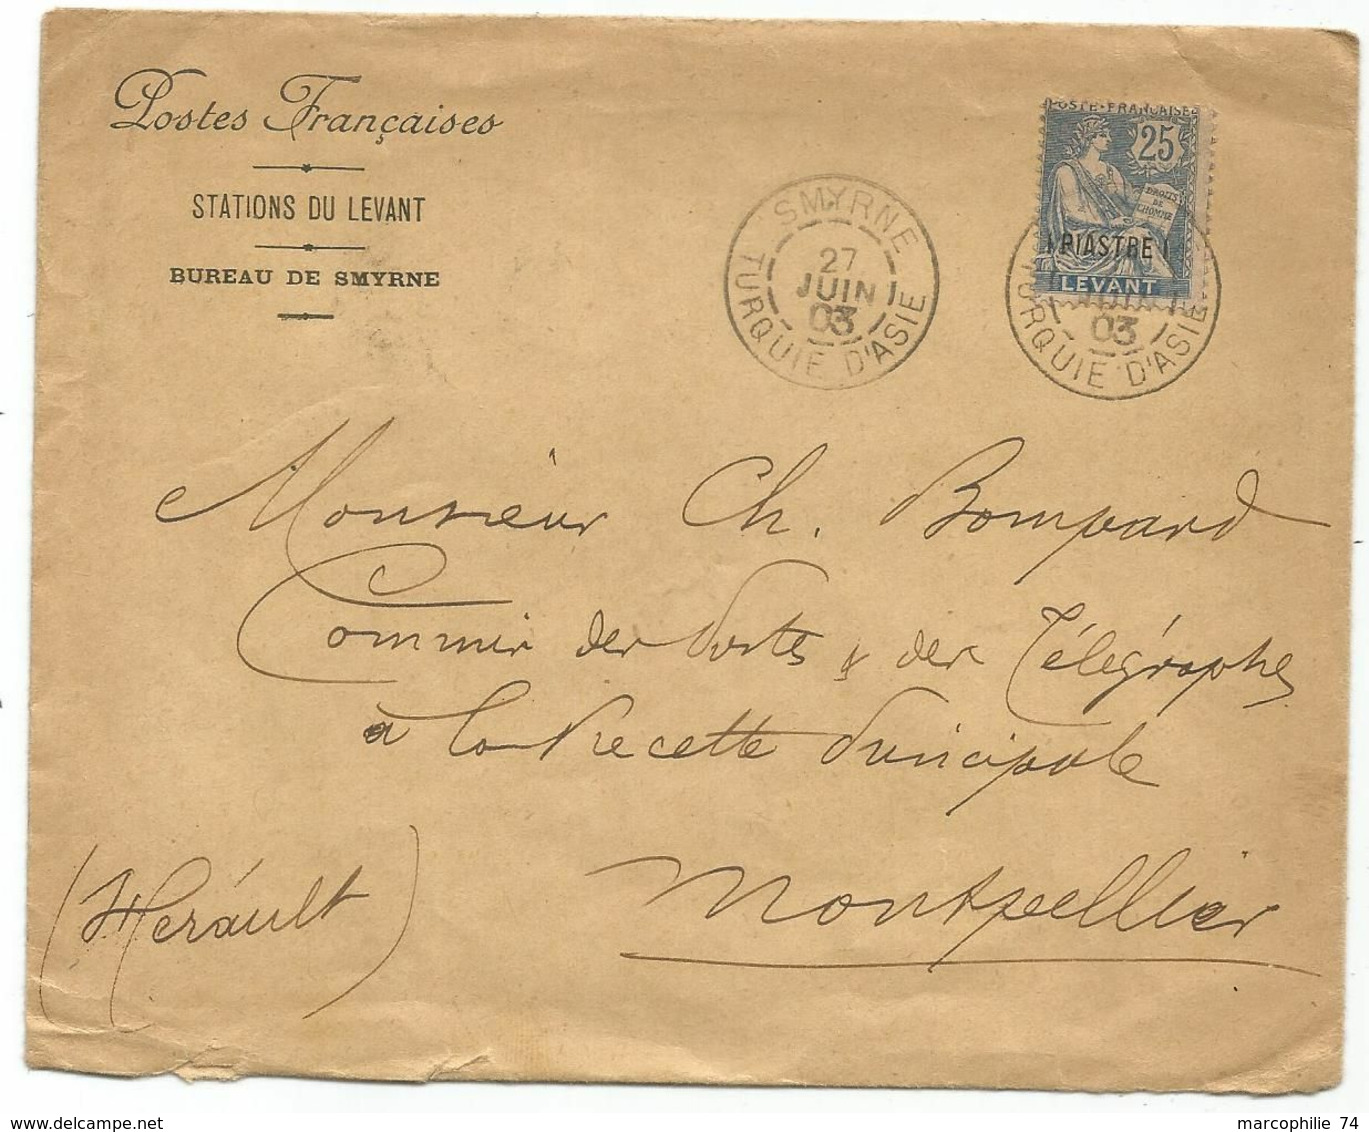 Postes Françaises
STATIONS DU LEVANT
BUREAU DE SMYRNE
SMYRNE
27
JUIN
03
TURQUIE D'ASIE
POSTE FRANÇAISE
25
DROITS
DE
L'HOMME
1 PIASTRE 1
LEVANT
03
TURQUIE D'ASIE
Monsieur Ch. Bompard
Commis des Postes & des Télégraphes
à la Recette Principale
Montpellier
(Hérault)
www.delcampe.net
marcophilie 74